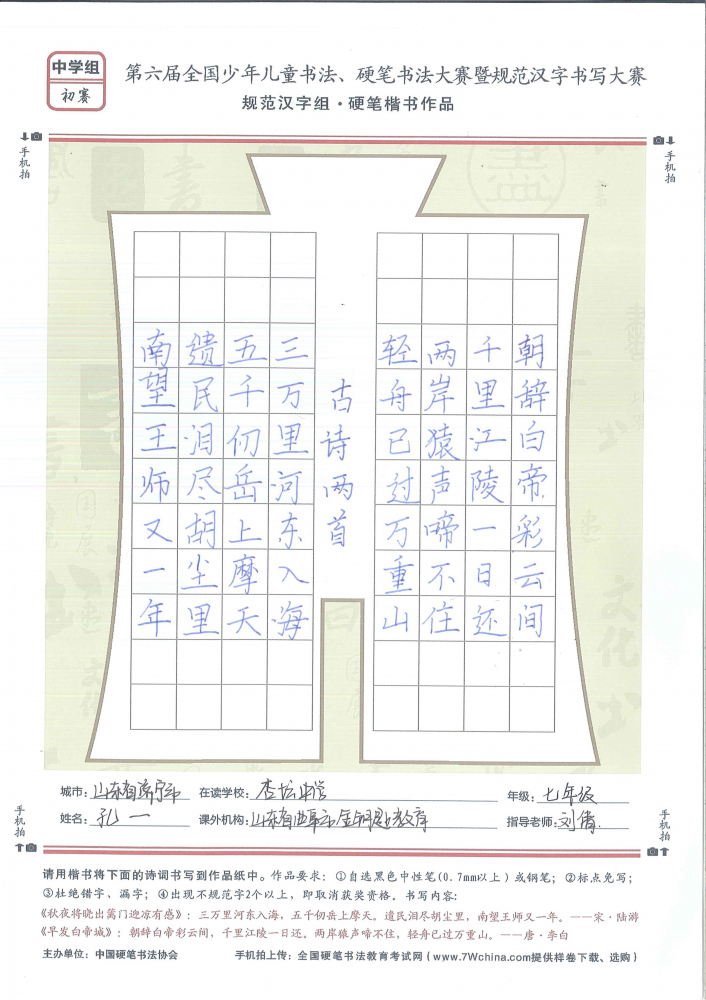 中学组
初赛
第六届全国少年儿童书法、硬笔书法大赛暨规范汉字书写大赛
规范汉字组·硬笔楷书作品
手机拍
手机拍
朝辞白帝彩云间
千里江陵一日还
两岸猿声啼不住
轻舟已过万重山
古诗两首
三万里河东入海
五千仞岳上摩天
遗民泪尽胡尘里
南望王师又一年
手机拍
手机拍
城市：山东省济宁市 在读学校：杏坛中学 年级：七年级
姓名：孔一 课外机构：山东省曲阜市金钥匙教育 指导老师：刘倩
请用楷书将下面的诗词书写到作品纸中。作品要求：①自选黑色中性笔(0.7mm以上）或钢笔；②标点免写；
③杜绝错字、漏字；④出现不规范字2个以上，即取消获奖资格。书写内容：
《秋夜将晓出篱门迎凉有感》：三万里河东入海，五千仞岳上摩天。遗民泪尽胡尘里，南望王师又一年。——宋·陆游
《早发白帝城》：朝辞白帝彩云间，千里江陵一日还。两岸猿声啼不住，轻舟已过万重山。——唐·李白
主办单位：中国硬笔书法协会 手机拍上传：全国硬笔书法教育考试网（www.7Wchina.com提供样卷下载、选购）